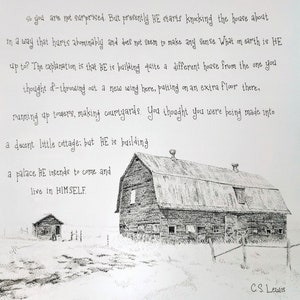 so you are not surprised. But presently HE starts knocking the house about
in a way that hurts abominably and does not seem to make any sense. What on earth is HE
up to? The explanation is that HE is building quite a different house from the one you
thought of - throwing out a new wing here, putting on an extra floor there,
running up towers, making courtyards. You thought you were being made into
a decent little cottage; but HE is building
a palace. HE intends to come and
live in HIMSELF.
C.S. Lewis